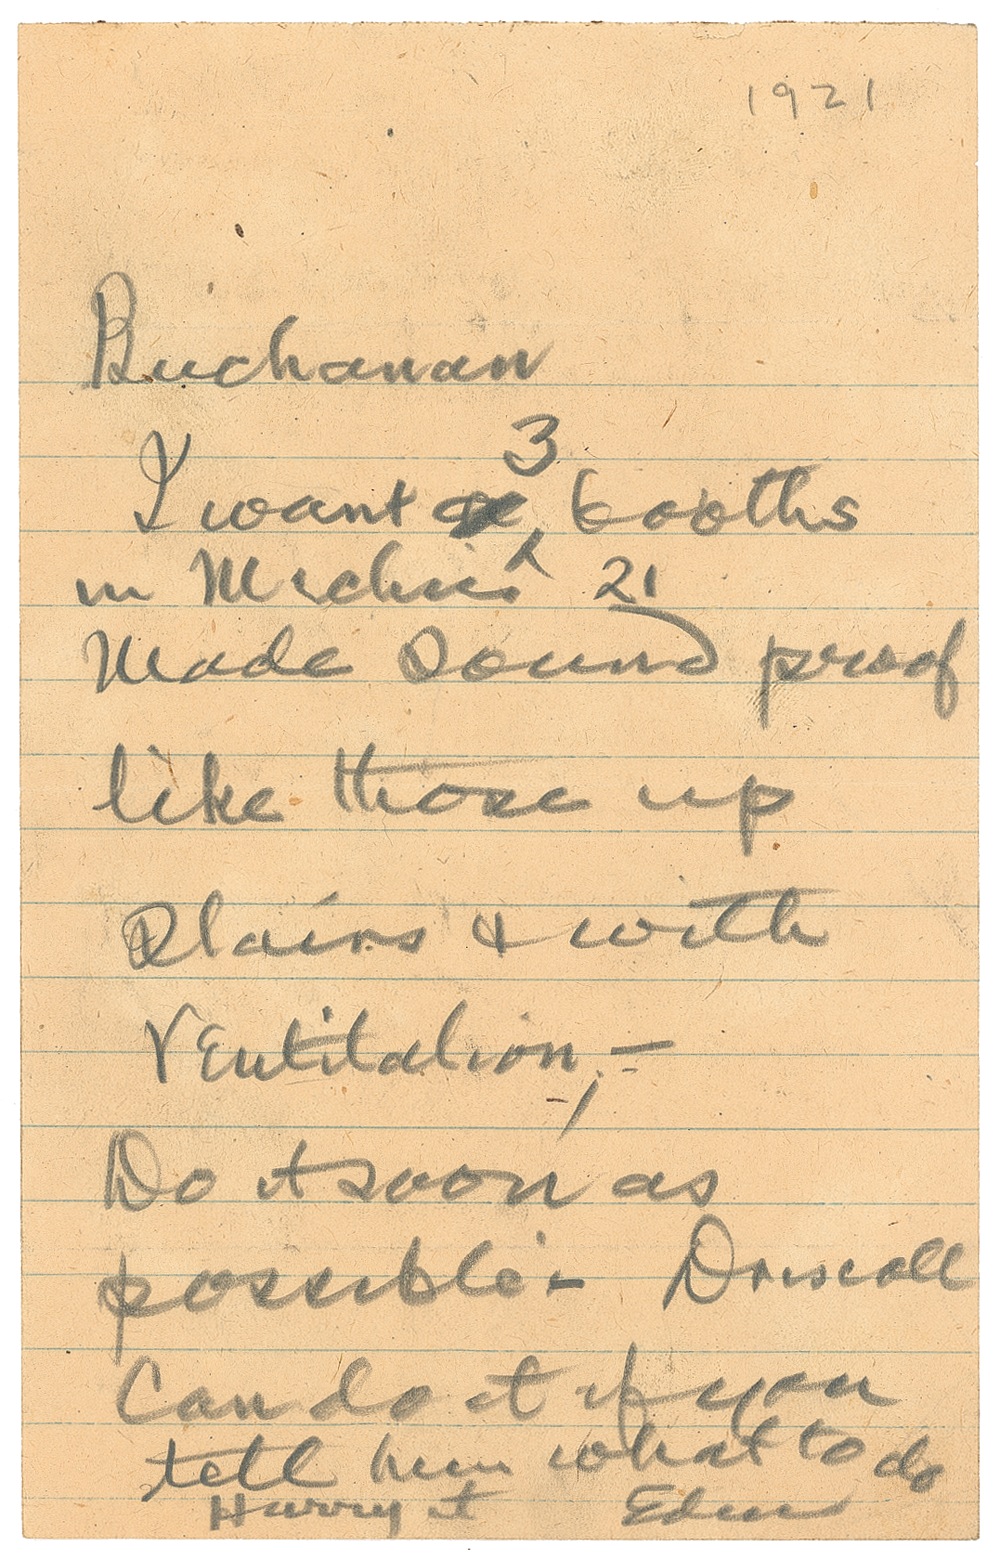 1921
Buchanan
3
I want booths
in 21
Made sound proof
like those up
stairs & with
Ventilation, —
Do it soon as
possible - Driscoll
Can do it if you
tell him what to do
Hurry it